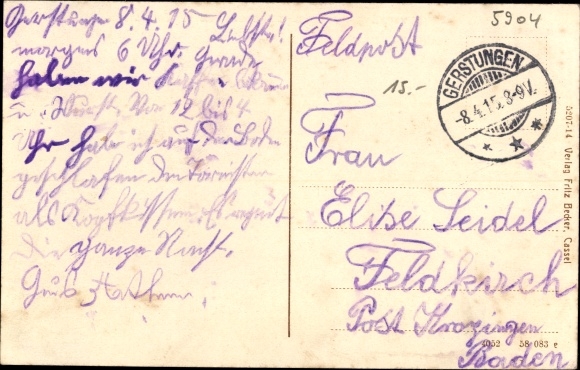 Gerstungen 8.4.15 Liebste!
morgens 6 Uhr. Gerade
haben wir Kaffee
u. Wurst. Von 12 bis 4
Uhr habe ich auf dem Boden
geschlafen den Tornister
als Kopfkissen. Es regnet
die ganze Nacht.
Gruß
Feldpost
5904
15.-
GERSTUNGEN
-8.4.15.8-9V.
* * *
Frau
Elise Seidel
Feldkirch
Post Krozingen
Baden
5207-14 Verlag Fritz Becker, Cassel
4052 58 083 e